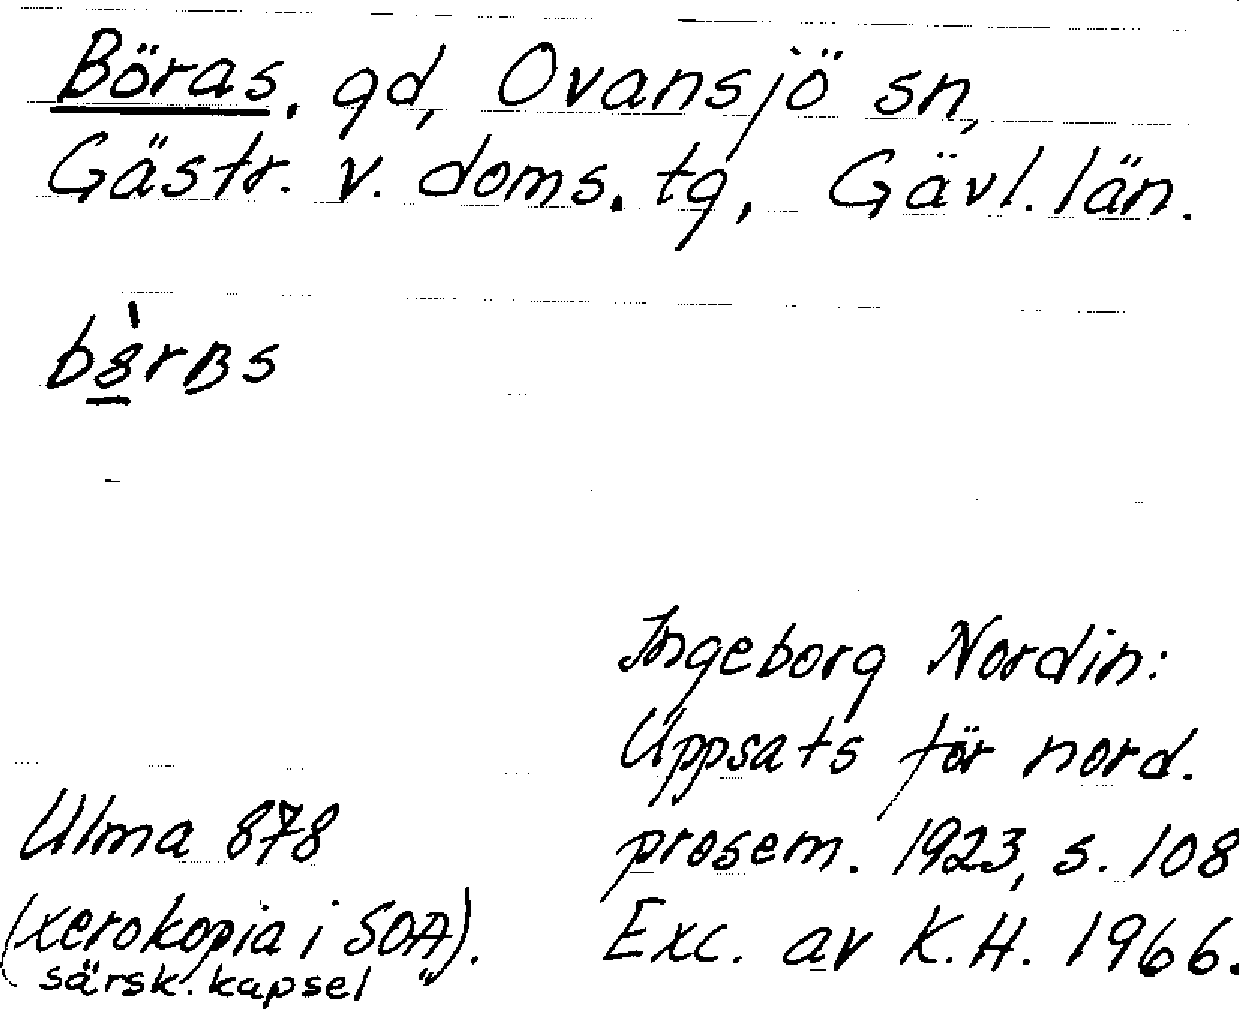 Böras, gd, Ovansjö sn,
Gästr. v. doms. tg, Gävl. län.
Ingeborg Nordin:
Uppsats för nord.
prosem. 1923, s. 108
Exc. av K.H. 1966.
Ulma 878
(xerokopia i SOA).
särsk. kapsel "